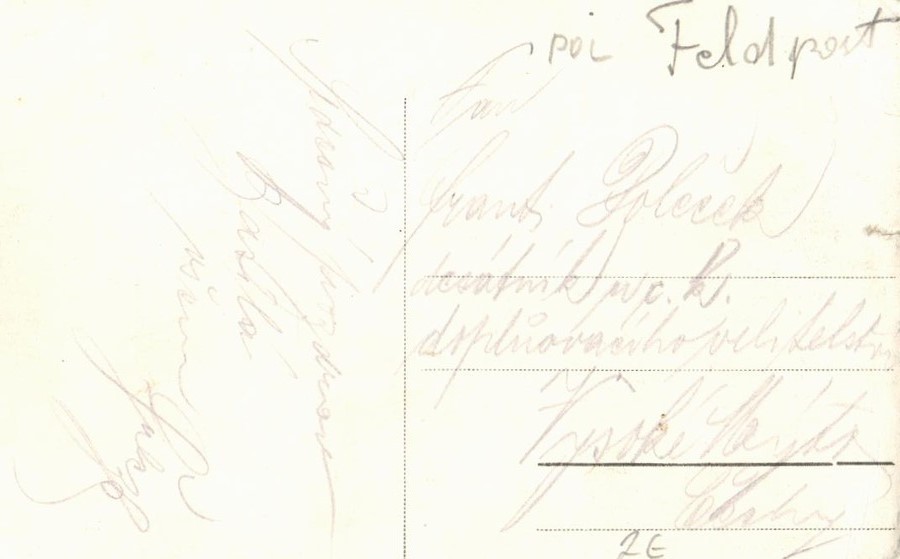 POL Feldpost
Pan
Frant. Poleček
desátník u c. k.
doplňovacího velitelství
Vysoké Mýto
Čechy
2E
Srdečný pozdrav
všem